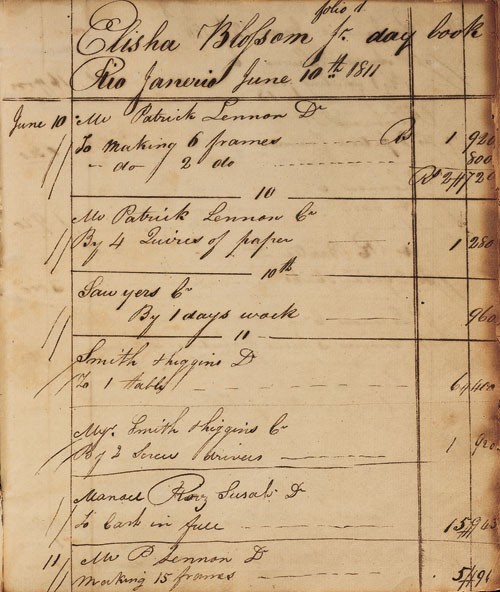 folio 1
Elisha Blossom Jr. day book
Rio Janerio June 10th 1811
June 10 Mr Patrick Lennon Dr
To making 6 frames 1 920
do 2 do 800
2 720
10
Mr Patrick Lennon Cr
By 4 Quires of paper 1 280
10th
Sawyers Cr
By 1 days work 960
11
Smith & higgins Dr
To 1 table 6 400
Smith & higgins Cr
By 2 Screw drivers 1 920
Manoel Susah Dr
To Cash in full 15 963
11 Mr P Lennon Dr
Making 15 frames